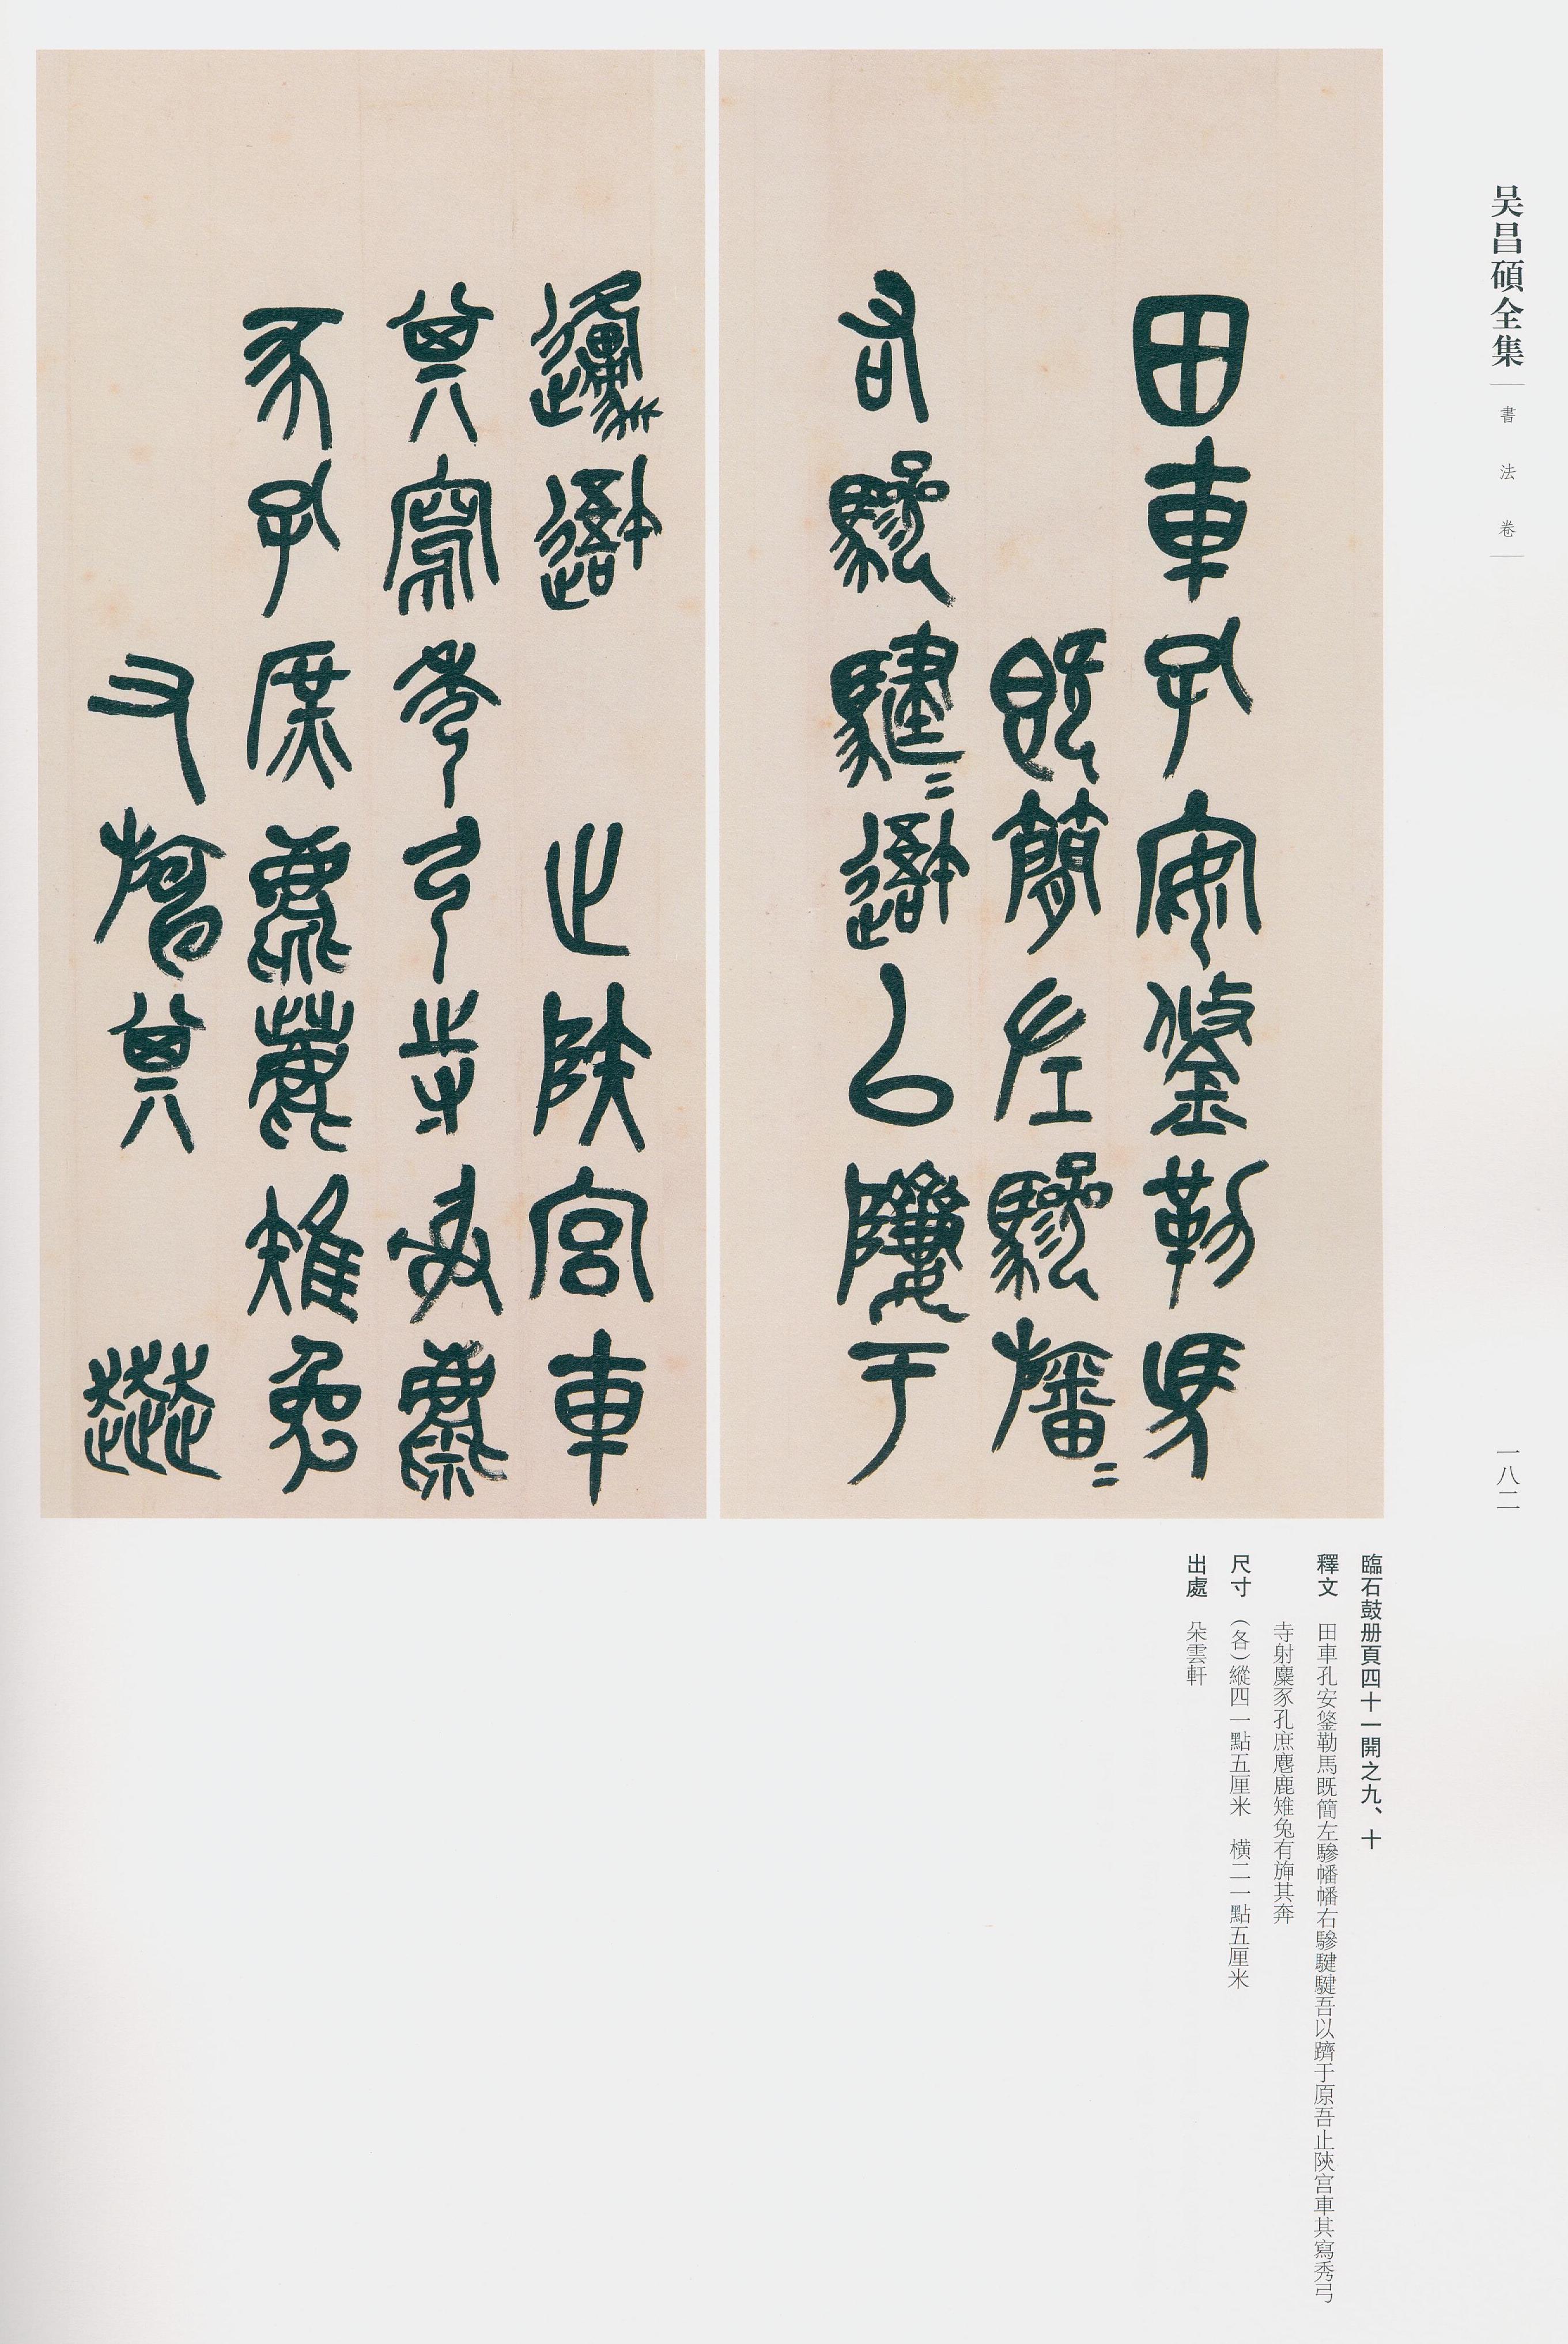 吴昌碩全集
書法卷
一八二
田車孔安鋚勒馬
既簡左驂旛〻
右驂騝〻䢖以隮于
邍䢖止陝宮車
其寫秀弓寺射麋
豕孔庶麀鹿雉兔
又旃其䞣
臨石鼓册頁四十一開之九、十
釋文 田車孔安鋚勒馬既簡左驂幡幡右驂騝騝吾以躋于原吾止陝宫車其寫秀弓
寺射麋豕孔庶麀鹿雉兔有旃其奔
尺寸 （各）縱四一點五厘米 横二一點五厘米
出處 朵雲軒